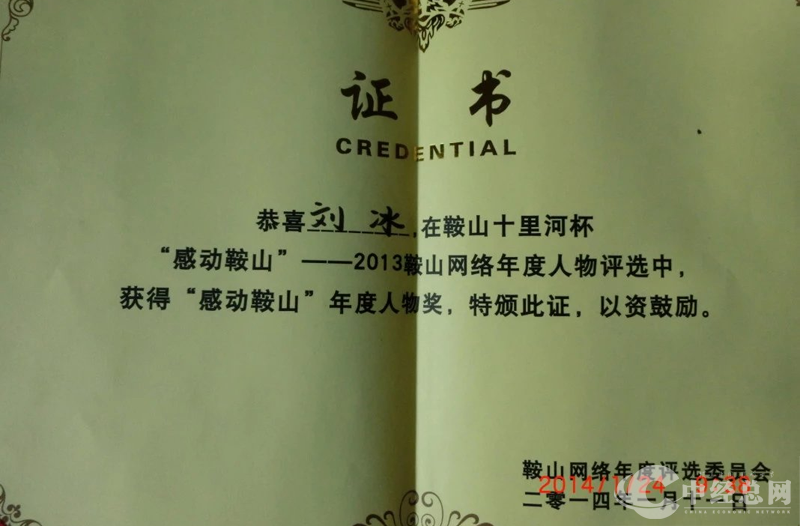 证书
CREDENTIAL
恭喜刘冰,在鞍山十里河杯
“感动鞍山”——2013鞍山网络年度人物评选中,
获得“感动鞍山”年度人物奖, 特颁此证, 以资鼓励。
鞍山网络年度评选委员会
2014/1/24 9:38
二零一四年一月十二日
中经总网
CHINA ECONOMIC NETWORK